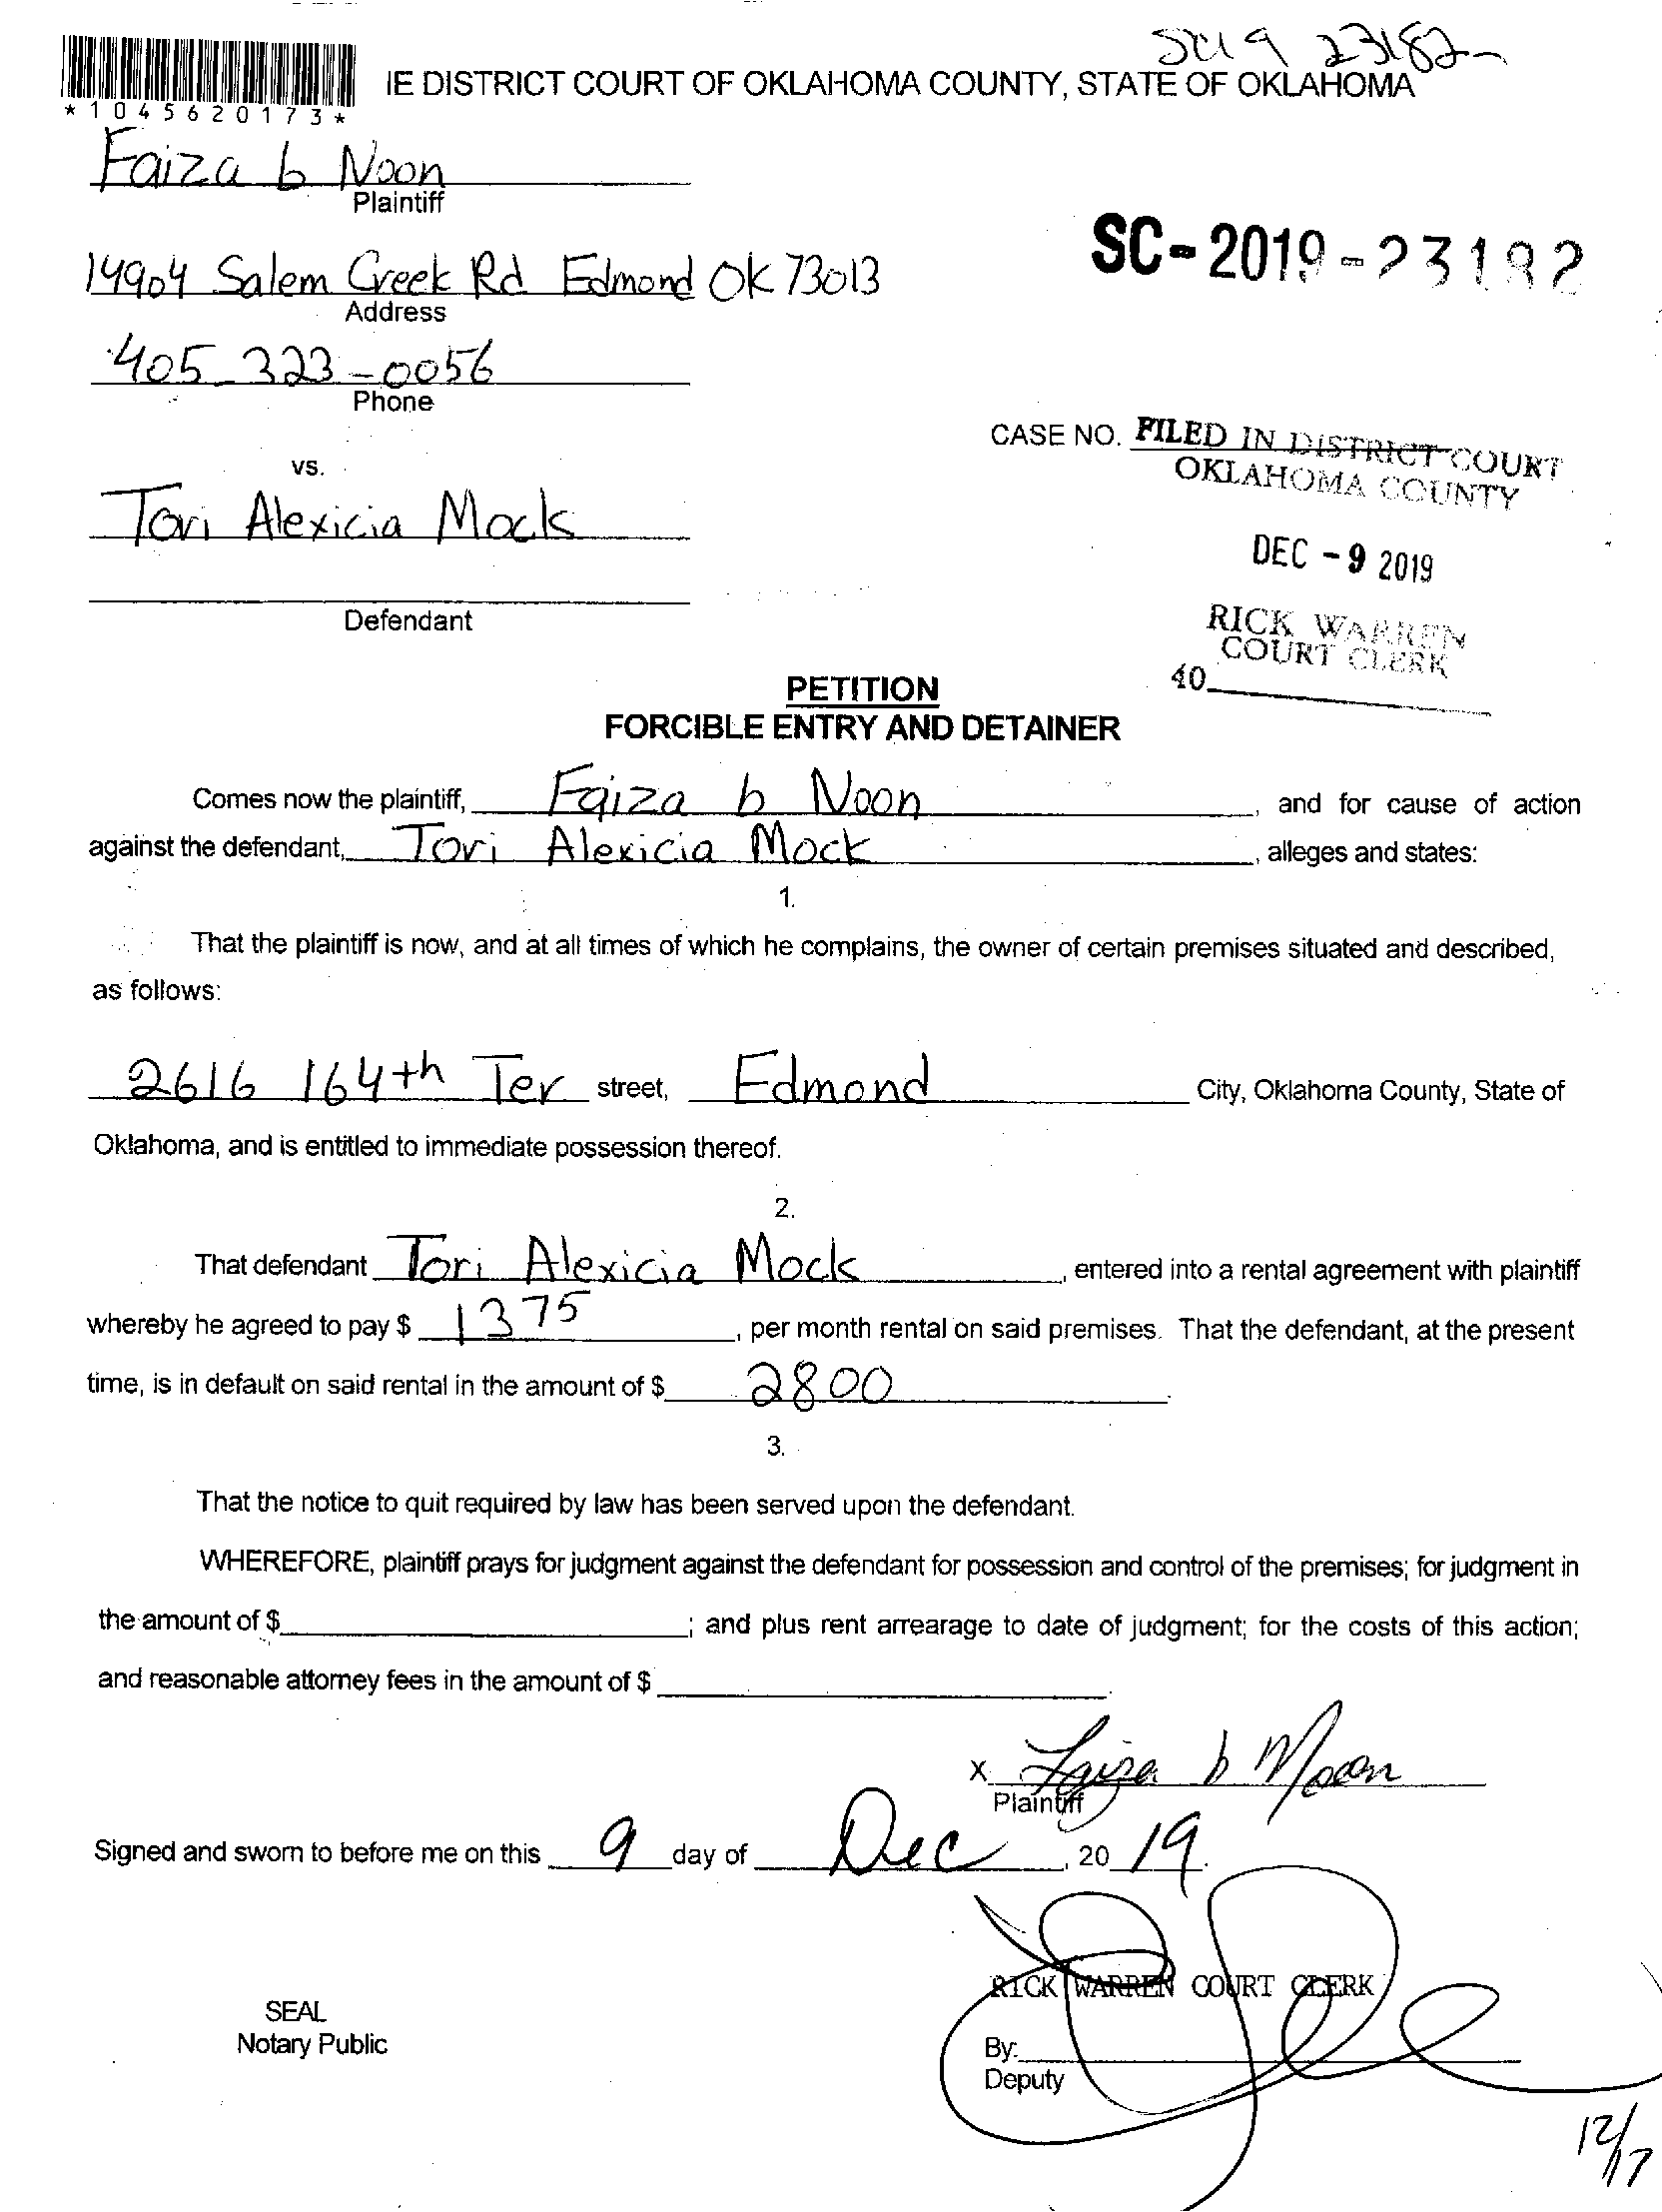 SC19 23182
IE DISTRICT COURT OF OKLAHOMA COUNTY, STATE OF OKLAHOMA
*1045620173*
Faiza b Noon
Plaintiff
SC-2019-23182
14904 Salem Creek Rd Edmond OK 73013
Address
405-323-0056
Phone
CASE NO. FILED IN DISTRICT COURT
OKLAHOMA COUNTY
vs.
Tori Alexicia Mock
DEC -9 2019
Defendant
RICK WARREN
COURT CLERK
40
PETITION
FORCIBLE ENTRY AND DETAINER
Comes now the plaintiff, Faiza b Noon, and for cause of action
against the defendant, Tori Alexicia Mock, alleges and states:
1.
That the plaintiff is now, and at all times of which he complains, the owner of certain premises situated and described,
as follows:
2616 164th Ter street, Edmond City, Oklahoma County, State of
Oklahoma, and is entitled to immediate possession thereof.
2.
That defendant Tori Alexicia Mock, entered into a rental agreement with plaintiff
whereby he agreed to pay $ 1375, per month rental on said premises. That the defendant, at the present
time, is in default on said rental in the amount of $ 2800.
3.
That the notice to quit required by law has been served upon the defendant.
WHEREFORE, plaintiff prays for judgment against the defendant for possession and control of the premises; for judgment in
the amount of $ ; and plus rent arrearage to date of judgment; for the costs of this action;
and reasonable attorney fees in the amount of $ .
X Faiza b Noon
Plaintiff
Signed and sworn to before me on this 9 day of Dec, 20 19.
RICK WARREN COURT CLERK
SEAL
Notary Public
By:
Deputy
12/17